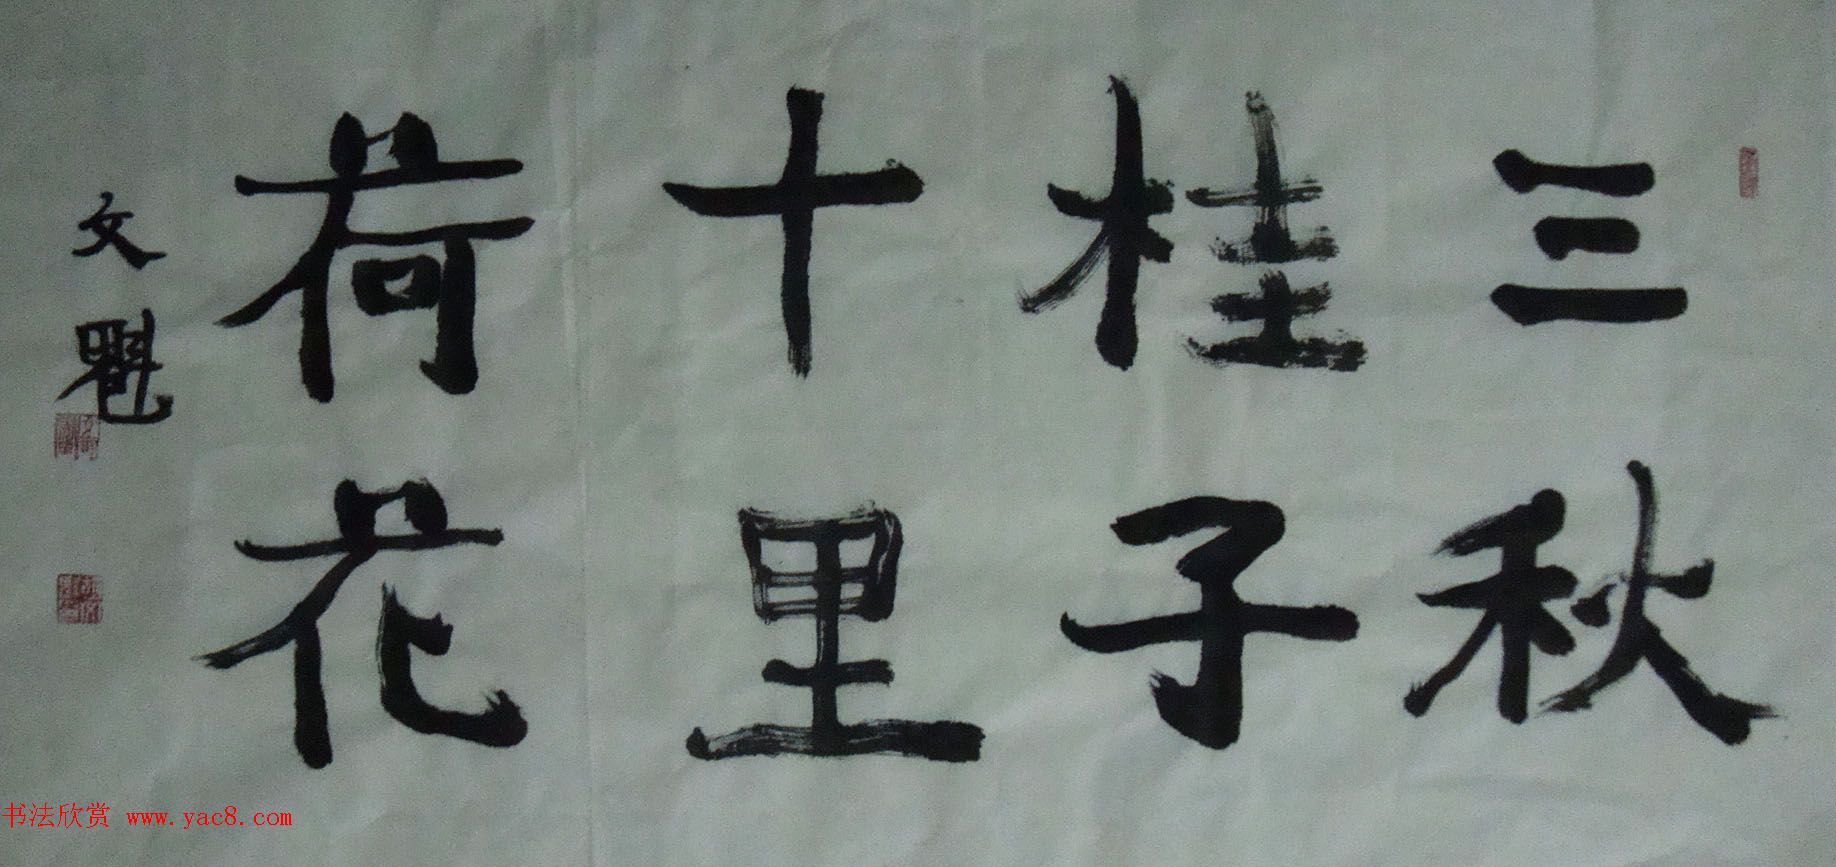 三秋
桂子
十里
荷花
文魁
书法欣赏 www.yac8.com